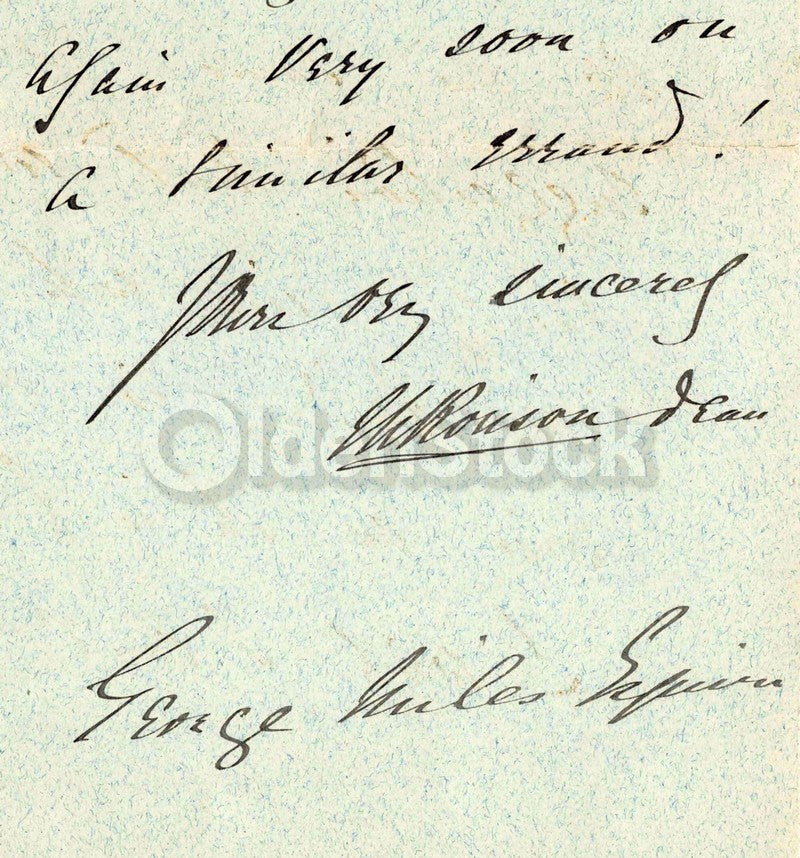 again very soon on
a similar errand!
Yours very sincerely
dean
George Miles Esquire
OldenStock